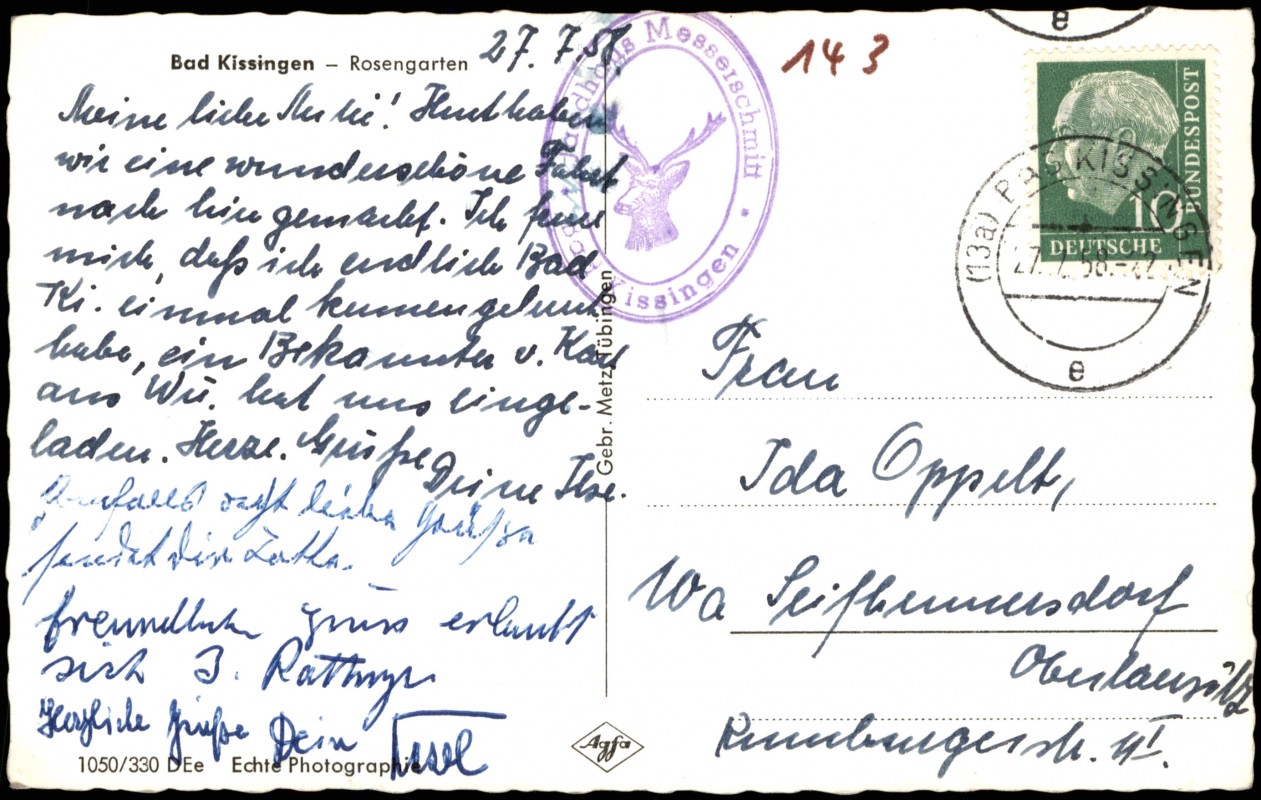 Bad Kissingen – Rosengarten 27.7.58.
Meine liebe Mutti! Heut haben
wir eine wunderschöne Fahrt
nach hier gemacht. Ich freue
mich, daß ich endlich Bad
Ki. einmal kennengelernt
habe, ein Bekannter v. Karl
aus Wü. hat uns einge-
laden. Herzl. Grüße
Deine Ilse.
Ebenfalls recht liebe Grüße
sendet Dir
freundlichen Gruss erlaubt
sich J.
Herzliche Grüße Dein
1050/330 DEe Echte Photographie
Gebr. Metz, Tübingen
Agfa
Messerschmitt
Kissingen
143
DEUTSCHE BUNDESPOST
10
(13a) BAD KISSINGEN
27.7.58.-22
e
e
Frau
Ida Oppelt,
10a Seifhennersdorf
Oberlausitz
Rumburgerstr. 41.